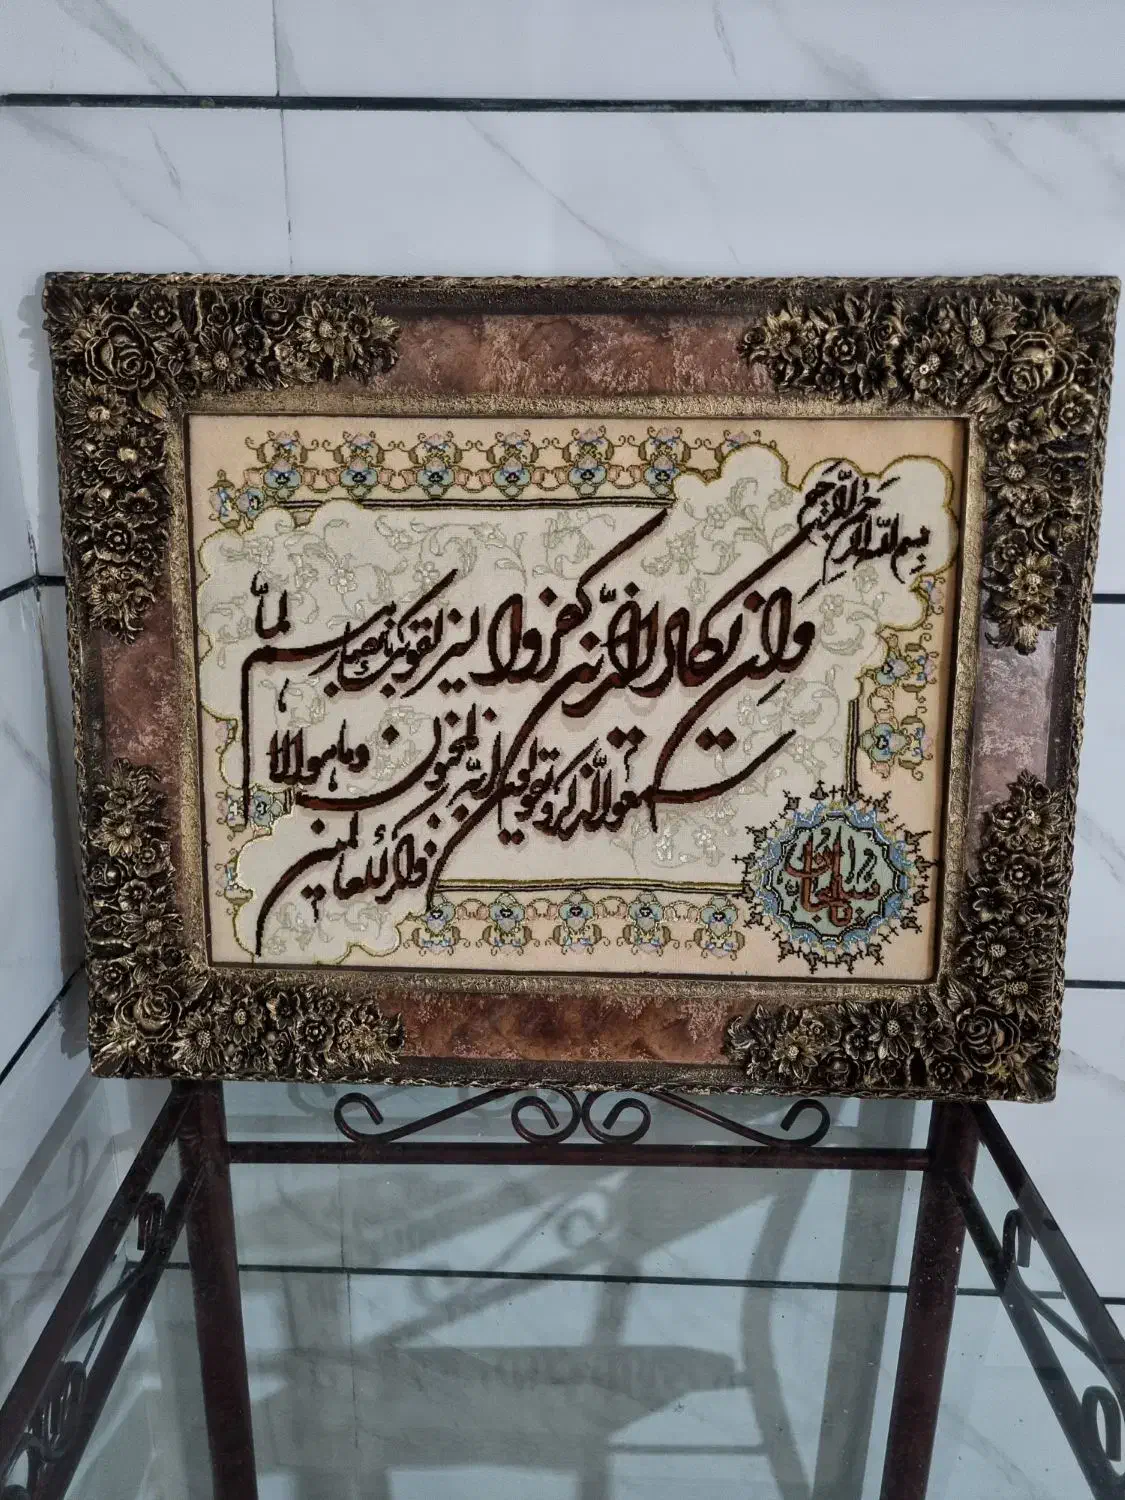 بسم الله الرحمن الرحیم
وَاِن یکاد الّذین کفروا لیزلقونک بابصارهم لمّا
سمعوا الذّکر و یقولون انّه لمجنون وما هو الّا
ذکرٌ للعالمین